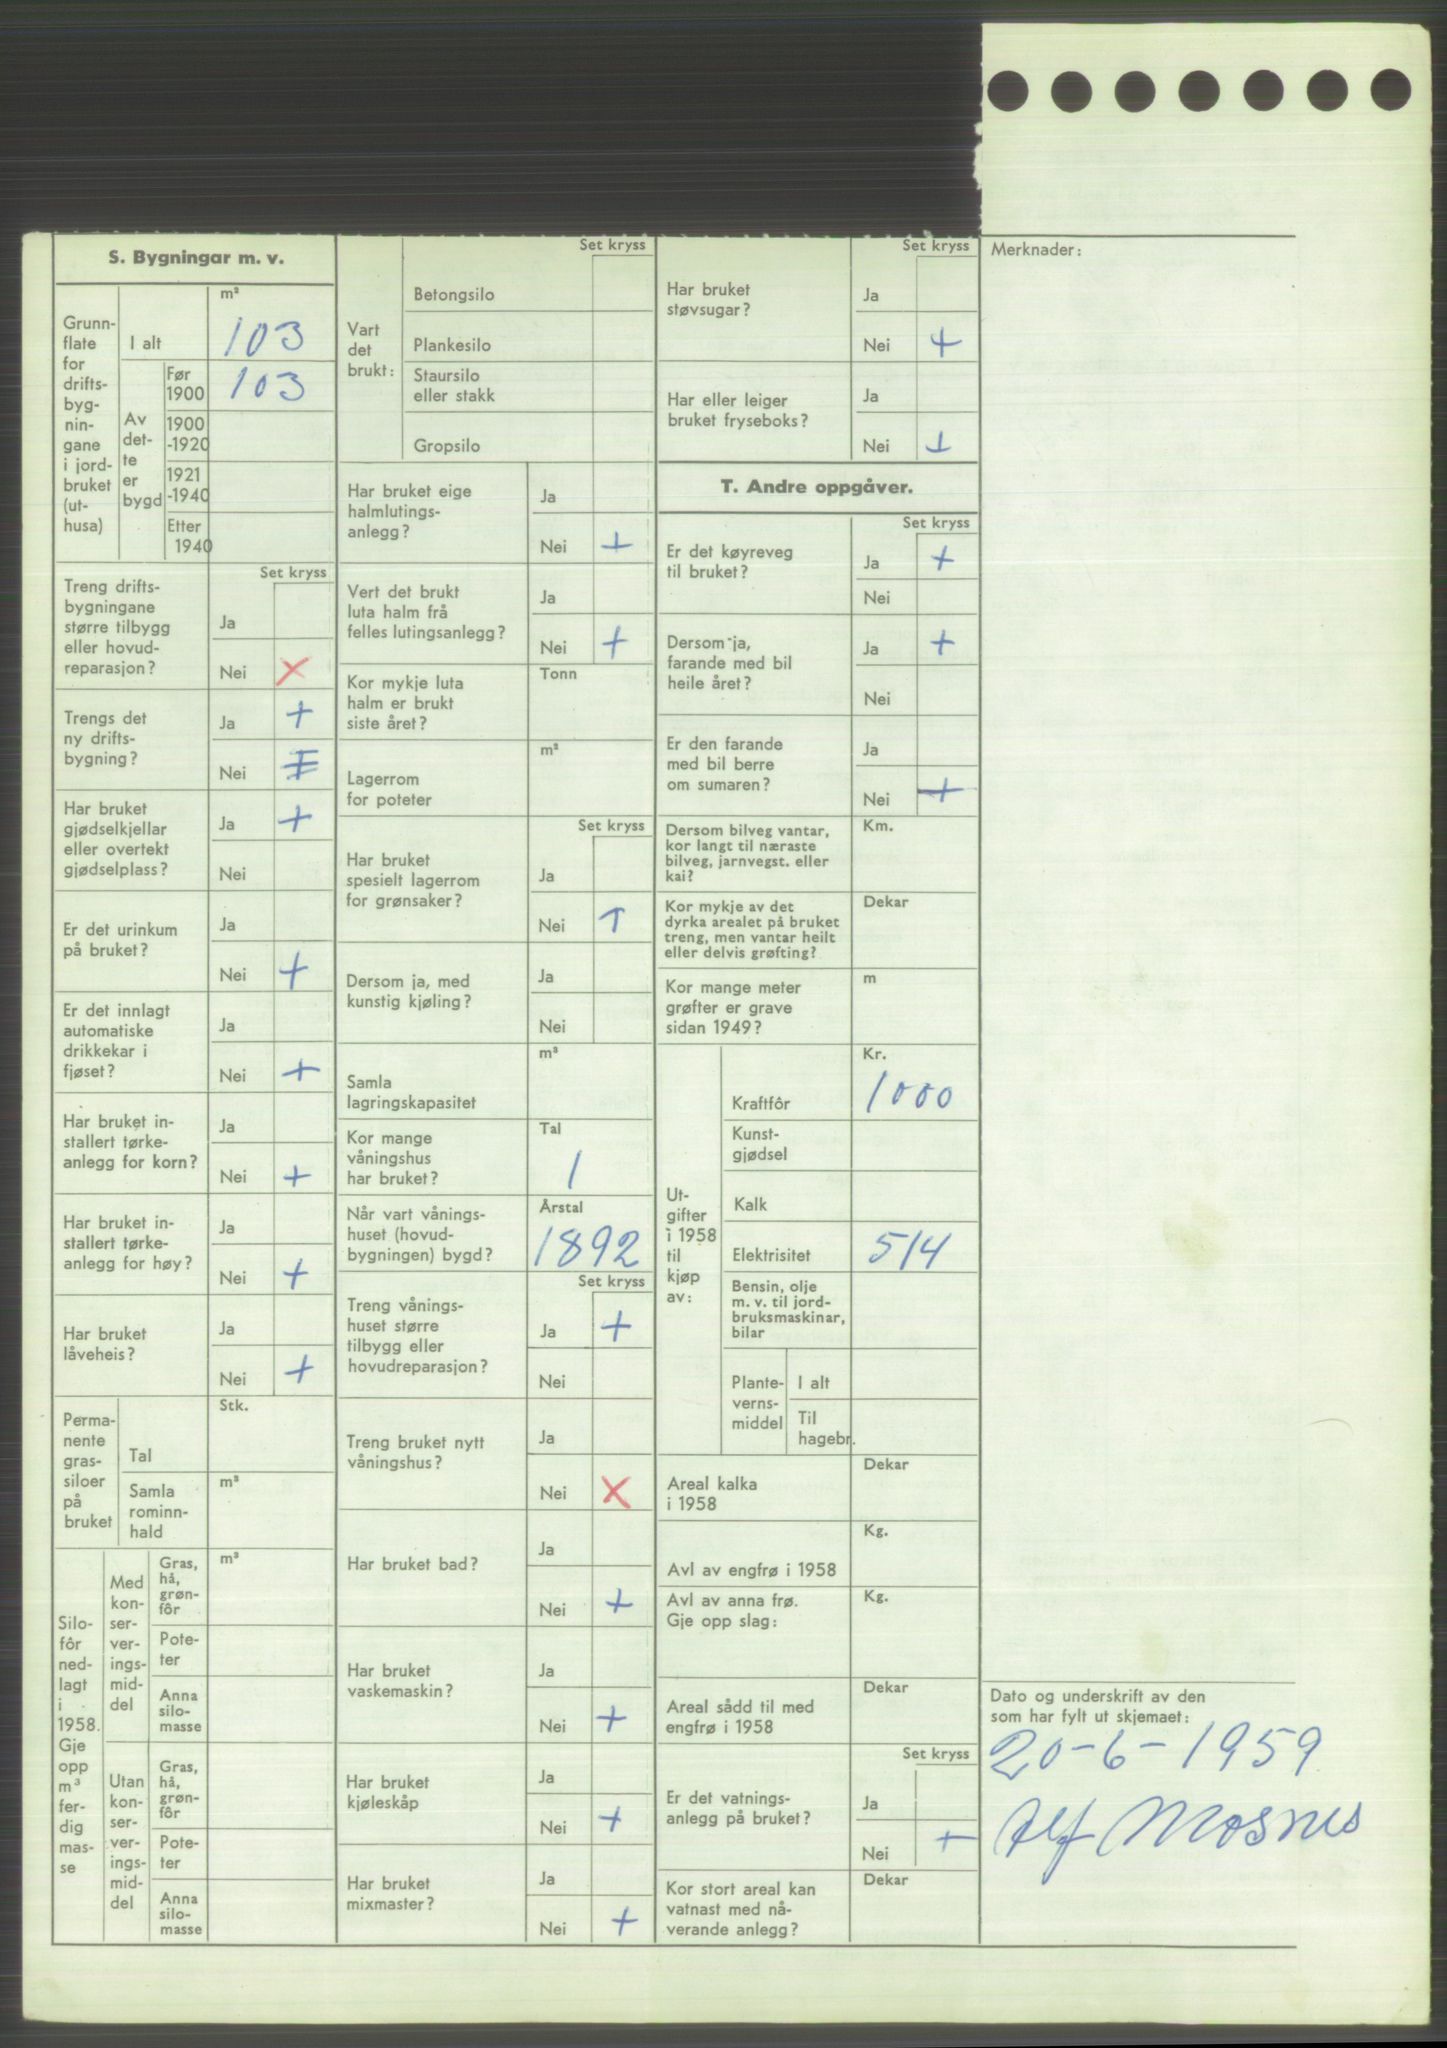 S. Bygningar m. v.
Grunn-
flate
for
drifts-
byg-
nin-
gane
i jord-
bruket
(ut-
husa)
m²
I alt 103
Av
det-
te
er
bygd
Før
1900 103
1900
-1920
1921
-1940
Etter
1940
Set kryss
Treng drifts-
bygningane
større tilbygg
eller hovud-
reparasjon?
Ja
Nei X
Trengs det
ny drifts-
bygning?
Ja +
Nei
Har bruket
gjødselkjellar
eller overtekt
gjødselplass?
Ja +
Nei
Er det urinkum
på bruket?
Ja
Nei +
Er det innlagt
automatiske
drikkekar i
fjøset?
Ja
Nei +
Har bruket in-
stallert tørke-
anlegg for korn?
Ja
Nei +
Har bruket in-
stallert tørke-
anlegg for høy?
Ja
Nei +
Har bruket
låveheis?
Ja
Nei +
Perma-
nente
gras-
siloer
på
bruket
Stk.
Tal
m³
Samla
rominn-
hald
Silo-
fôr
ned-
lagt
i
1958.
Gje
opp
m³
fer-
dig
mas-
se
Med
kon-
ser-
ver-
ings-
mid-
del
m³
Gras,
hå,
grøn-
fôr
Pote-
ter
Anna
silo-
masse
Utan
kon-
ser-
ver-
ings-
mid-
del
Gras,
hå,
grøn-
fôr
Pote-
ter
Anna
silo-
masse
Set kryss
Vart
det
brukt:
Betongsilo
Plankesilo
Staursilo
eller stakk
Gropsilo
Har bruket eige
halmlutings-
anlegg?
Ja
Nei +
Vert det brukt
luta halm frå
felles lutingsanlegg?
Ja
Nei +
Kor mykje luta
halm er brukt
siste året?
Tonn
Lagerrom
for poteter
m²
Set kryss
Har bruket
spesielt lagerrom
for grønsaker?
Ja
Nei +
Dersom ja, med
kunstig kjøling?
Ja
Nei
m³
Samla
lagringskapasitet
Kor mange
våningshus
har bruket?
Tal
1
Når vart vånings-
huset (hovud-
bygningen) bygd?
Årstal
1892
Set kryss
Treng vånings-
huset større
tilbygg eller
hovudreparasjon?
Ja +
Nei
Treng bruket nytt
våningshus?
Ja
Nei X
Har bruket bad?
Ja
Nei +
Har bruket
vaskemaskin?
Ja
Nei +
Har bruket
kjøleskåp
Ja
Nei +
Har bruket
mixmaster?
Ja
Nei +
Set kryss
Har bruket
støvsugar?
Ja
Nei +
Har eller leiger
bruket fryseboks?
Ja
Nei +
T. Andre oppgåver.
Set kryss
Er det køyreveg
til bruket?
Ja +
Nei
Dersom ja,
farande med bil
heile året?
Ja +
Nei
Er den farande
med bil berre
om sumaren?
Ja
Nei +
Dersom bilveg vantar,
kor langt til næraste
bilveg, jarnvegst. eller
kai?
Km.
Kor mykje av det
dyrka arealet på bruket
treng, men vantar heilt
eller delvis grøfting?
Dekar
Kor mange meter
grøfter er grave
sidan 1949?
m
Ut-
gifter
i 1958
til
kjøp
av:
Kr.
Kraftfôr 1000
Kunst-
gjødsel
Kalk
Elektrisitet 514
Bensin, olje
m. v. til jord-
bruksmaskinar,
bilar
Plante-
verns-
middel
I alt
Til
hagebr.
Areal kalka
i 1958
Dekar
Kg.
Avl av engfrø i 1958
Avl av anna frø.
Gje opp slag:
Kg.
Areal sådd til med
engfrø i 1958
Dekar
Set kryss
Er det vatnings-
anlegg på bruket?
Ja
Nei +
Kor stort areal kan
vatnast med nå-
verande anlegg?
Dekar
Merknader:
Dato og underskrift av den
som har fylt ut skjemaet:
20-6-1959
Alf Mosnes